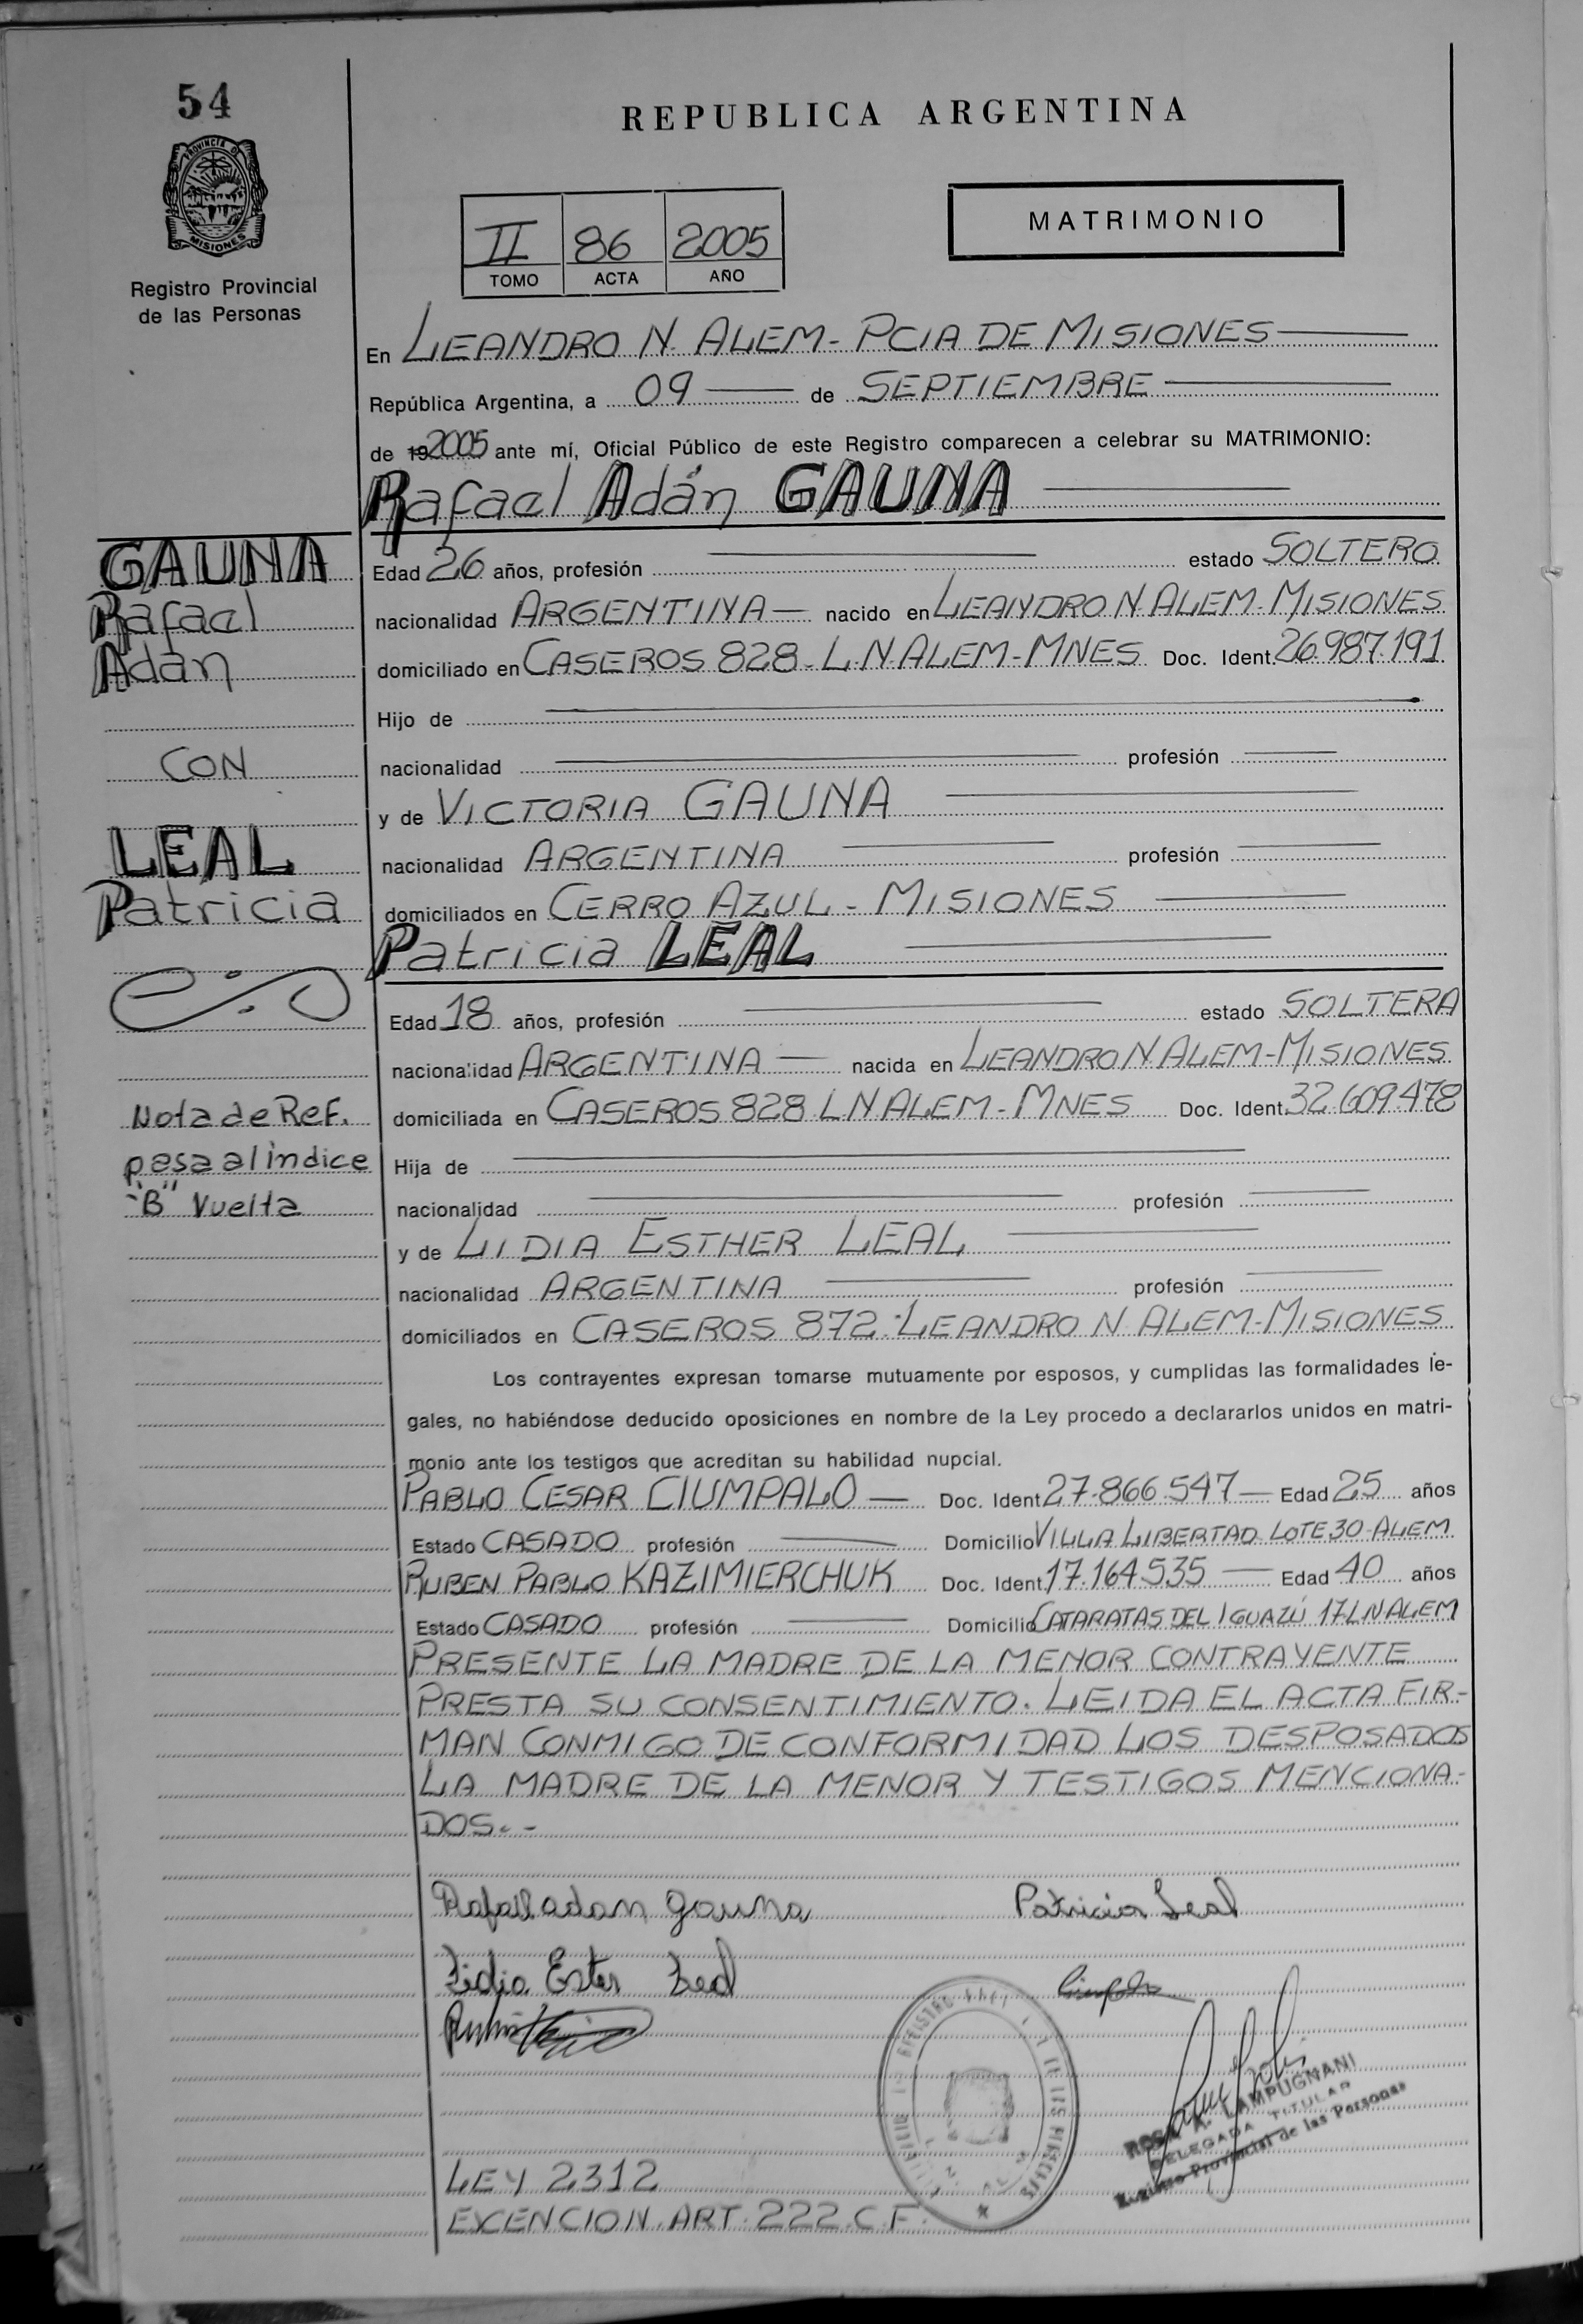 54
REPUBLICA ARGENTINA
PROVINCIA DE
MISIONES
Registro Provincial
de las Personas
II 86 2005
TOMO ACTA AÑO
MATRIMONIO
En LEANDRO N. ALEM - PCIA DE MISIONES
República Argentina, a 09 de SEPTIEMBRE
de 192005 ante mí, Oficial Público de este Registro comparecen a celebrar su MATRIMONIO:
Rafael Adán GAUNA
GAUNA
Rafael
Adán
CON
LEAL
Patricia
Nota de Ref.
pasa al índice
"B" Vuelta
Edad 26 años, profesión estado SOLTERO
nacionalidad ARGENTINA nacido en LEANDRO N ALEM - MISIONES
domiciliado en CASEROS 828 - L.N.ALEM - MNES Doc. Ident. 26.987.191
Hijo de
nacionalidad profesión
y de VICTORIA GAUNA
nacionalidad ARGENTINA profesión
domiciliados en CERRO AZUL - MISIONES
Patricia LEAL
Edad 18 años, profesión estado SOLTERA
nacionalidad ARGENTINA nacida en LEANDRO N ALEM - MISIONES
domiciliada en CASEROS 828 L N ALEM - MNES Doc. Ident. 32.609.478
Hija de
nacionalidad profesión
y de LIDIA ESTHER LEAL
nacionalidad ARGENTINA profesión
domiciliados en CASEROS 872 - LEANDRO N ALEM - MISIONES
Los contrayentes expresan tomarse mutuamente por esposos, y cumplidas las formalidades le-
gales, no habiéndose deducido oposiciones en nombre de la Ley procedo a declararlos unidos en matri-
monio ante los testigos que acreditan su habilidad nupcial.
PABLO CESAR CIUMPALO Doc. Ident 27.866.547 Edad 25 años
Estado CASADO profesión Domicilio VILLA LIBERTAD LOTE 30 - ALEM
RUBEN PABLO KAZIMIERCHUK Doc. Ident. 17.164.535 Edad 40 años
Estado CASADO profesión Domicilio CATARATAS DEL IGUAZÚ 17 L N ALEM
PRESENTE LA MADRE DE LA MENOR CONTRAYENTE
PRESTA SU CONSENTIMIENTO. LEIDA EL ACTA FIR-
MAN CONMIGO DE CONFORMIDAD LOS DESPOSADOS
LA MADRE DE LA MENOR Y TESTIGOS MENCIONA-
DOS.-
Rafael adam gauna Patricia Leal
Lidia Ester Leal
ROSA A. LAMPUGNANI
DELEGADA TITULAR
Registro Provincial de las Personas
LEY 2312
EXCENCION. ART. 222. C.F.